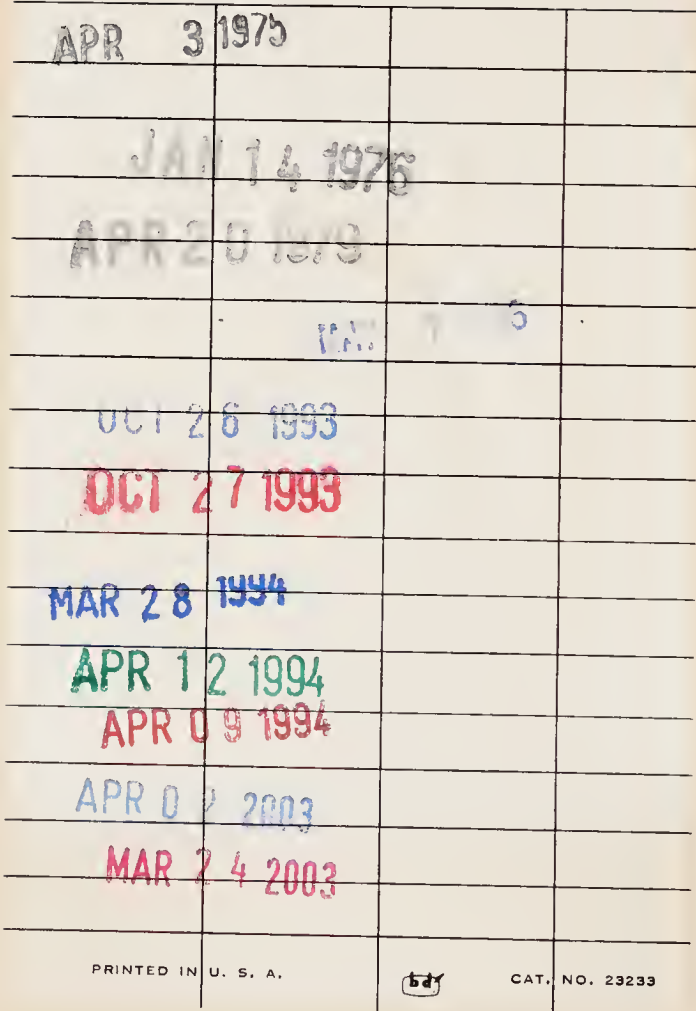 APR 3 1975
JAN 14 1976
APR 20 1979
OCT 26 1993
OCT 27 1993
MAR 28 1994
APR 12 1994
APR 09 1994
APR 02 2003
MAR 24 2003
PRINTED IN U. S. A. bd CAT. NO. 23233